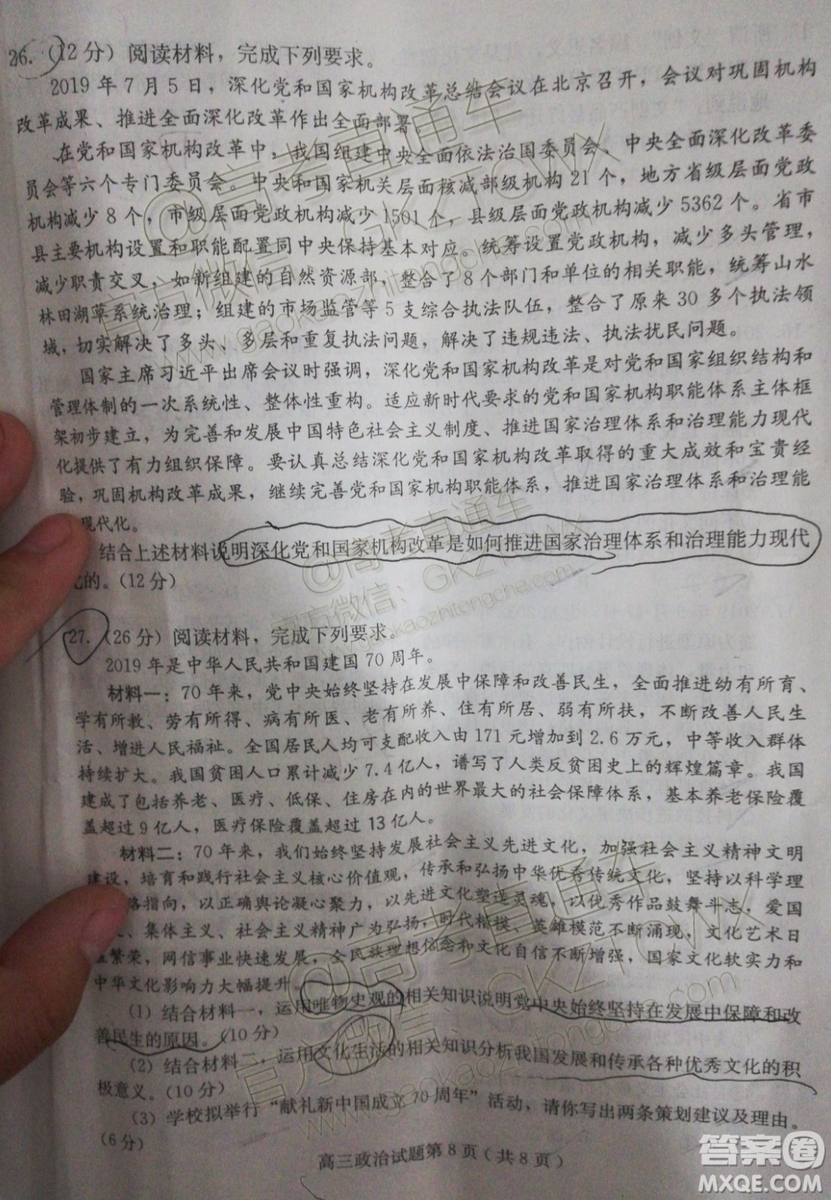 26.（12分）阅读材料，完成下列要求。
2019年7月5日，深化党和国家机构改革总结会议在北京召开，会议对巩固机构
改革成果、推进全面深化改革作出全面部署。
在党和国家机构改革中，我国组建中央全面依法治国委员会、中央全面深化改革委
员会等六个专门委员会。中央和国家机关层面核减部级机构21个，地方省级层面党政
机构减少8个，市级层面党政机构减少1501个，县级层面党政机构减少5362个。省市
县主要机构设置和职能配置同中央保持基本对应。统筹设置党政机构，减少多头管理，
减少职责交叉，如新组建的自然资源部，整合了8个部门和单位的相关职能，统筹山水
林田湖草系统治理；组建的市场监管等5支综合执法队伍，整合了原来30多个执法领
域，切实解决了多头、多层和重复执法问题，解决了违规违法、执法扰民问题。
国家主席习近平出席会议时强调，深化党和国家机构改革是对党和国家组织结构和
管理体制的一次系统性、整体性重构。适应新时代要求的党和国家机构职能体系主体框
架初步建立，为完善和发展中国特色社会主义制度、推进国家治理体系和治理能力现代
化提供了有力组织保障。要认真总结深化党和国家机构改革取得的重大成效和宝贵经
验，巩固机构改革成果，继续完善党和国家机构职能体系，推进国家治理体系和治理能
现代化。
结合上述材料说明深化党和国家机构改革是如何推进国家治理体系和治理能力现代
化的。（12分）
27.（26分）阅读材料，完成下列要求。
2019年是中华人民共和国建国70周年。
材料一：70年来，党中央始终坚持在发展中保障和改善民生，全面推进幼有所育、
学有所教、劳有所得、病有所医、老有所养、住有所居、弱有所扶，不断改善人民生
活、增进人民福祉。全国居民人均可支配收入由171元增加到2.6万元，中等收入群体
持续扩大。我国贫困人口累计减少7.4亿人，谱写了人类反贫困史上的辉煌篇章。我国
建成了包括养老、医疗、低保、住房在内的世界最大的社会保障体系，基本养老保险覆
盖超过9亿人，医疗保险覆盖超过13亿人。
材料二：70年来，我们始终坚持发展社会主义先进文化，加强社会主义精神文明
建设，培育和践行社会主义核心价值观，传承和弘扬中华优秀传统文化，坚持以科学理
路指向，以正确舆论凝心聚力，以先进文化塑造灵魂，以优秀作品鼓舞斗志，爱国
、集体主义、社会主义精神广为弘扬，时代楷模、英雄模范不断涌现，文化艺术日
繁荣，网信事业快速发展，全民族理想信念和文化自信不断增强，国家文化软实力和
中华文化影响力大幅提升。
（1）结合材料一，运用唯物史观的相关知识说明党中央始终坚持在发展中保障和改
善民生的原因。（10分）
（2）结合材料二，运用文化生活的相关知识分析我国发展和传承各种优秀文化的积
极意义。（10分）
（3）学校拟举行“献礼新中国成立70周年”活动，请你写出两条策划建议及理由。
（6分）
高三政治试题第8页（共8页）
@高考直通车
官方微信：GKZTCWX
www.gaokaozhitongche.com
@高考直通车
官方微信：GKZTCWX
www.gaokaozhitongche.com
@高考直通车
官方微信：GKZTCWX
www.gaokaozhitongche.com
答案圈
MXQE.COM